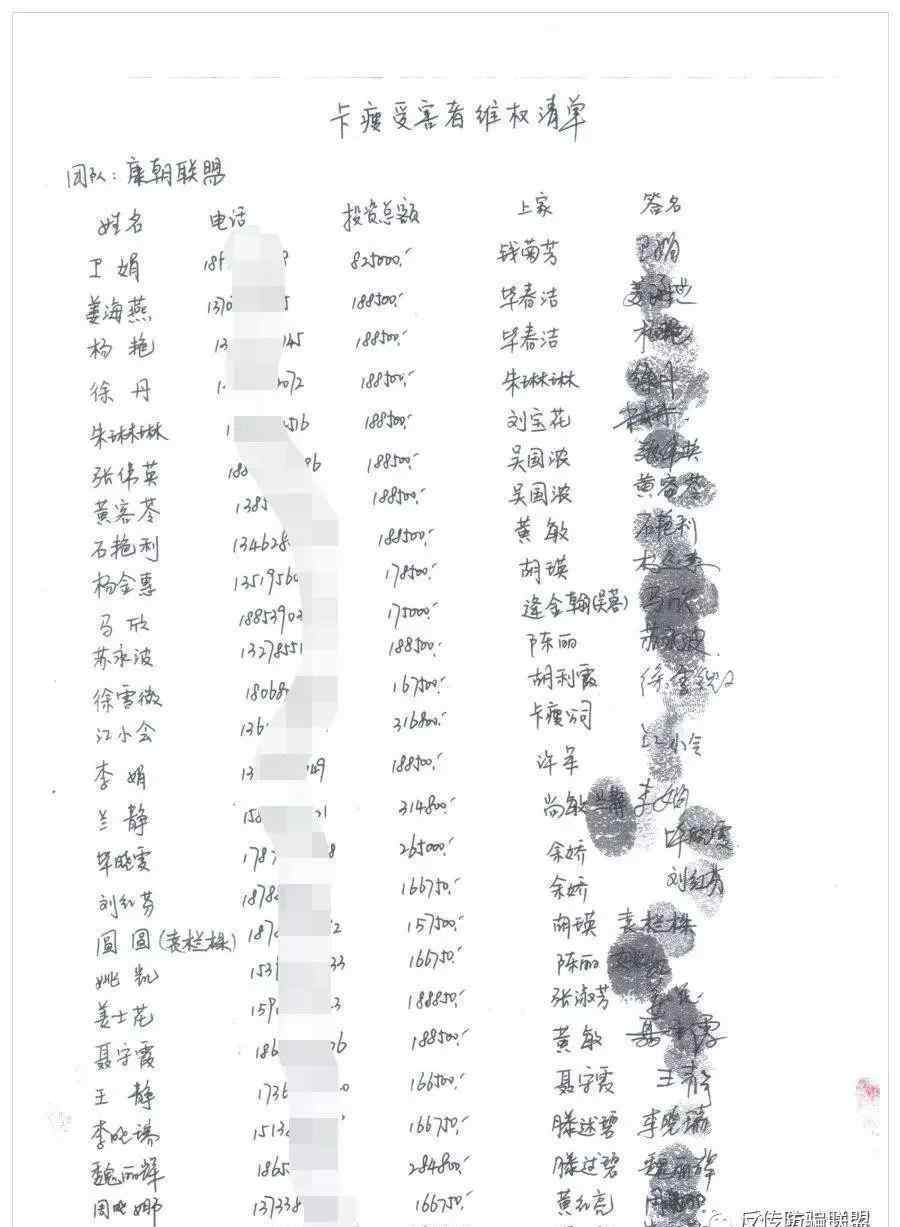 卡瘦受害者维权清单
团队：康朝联盟
姓名 电话 投资总额 上家 签名
卫娟 825000 钱菊芳 卫娟
姜海燕 1370 188500 毕春洁
杨艳 13 145 188500 毕春洁 杨艳
徐丹 1 072 188500 朱琳琳 徐丹
朱琳琳 1 516 188500 刘宝花
张伟英 180 06 188500 吴国波 张伟英
黄客芩 1385 188500 吴国波 黄客芩
石艳利 134628 188500 黄敏 石艳利
杨金惠 1351956 178500 胡瑛
马欣 1885390 175000 逄金翰 马欣
苏永波 1327855 188500 陈丽 苏永波
徐雪微 18068 167500 胡利霞
江小会 136 316800 卡瘦公司 江小会
李娟 13 49 188500 许军
兰静 150 314800 尚敏 兰静 李娟
毕晓霞 1787 8 265000 余娇 毕晓霞
刘红芬 1878 166750 余娇 刘红芬
圆圆(袁栏株) 187 2 157500 胡瑛 袁栏株
姚凯 153 33 166750 陈丽
姜士花 159 3 188850 张淑芳
聂宇霞 186 6 188500 黄敏
王静 1736 0 166500 聂宇霞 王静
李晓瑞 1513 166750 滕述碧
魏丽辉 1865 284800 滕述碧 魏丽辉
周晓娜 137338 166750 黄红亮
反传防骗联盟